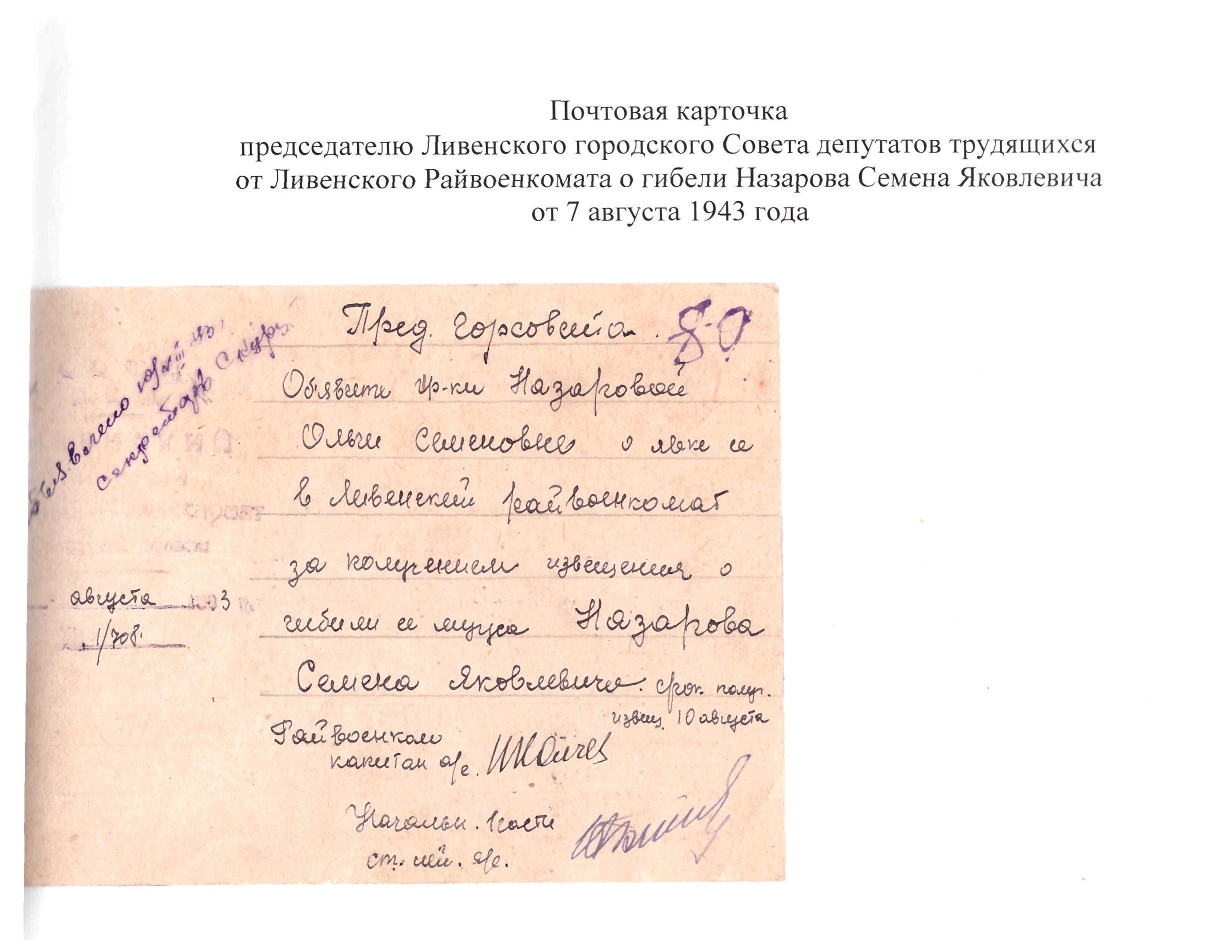 Почтовая карточка
председателю Ливенского городского Совета депутатов трудящихся
от Ливенского Райвоенкомата о гибели Назарова Семена Яковлевича
от 7 августа 1943 года
Пред. горсовета. 80
Объявите гр-ки Назаровой
Ольги Семеновне о явке ее
в Ливенский райвоенкомат
за получением извещения о
гибили ее мужа Назарова
Семена Яковлевича. срок получ.
извещ. 10 августа
августа 3
1/708.
Райвоенком
капитан а/с.
Начальн. 1 части
ст. лей. а/с.